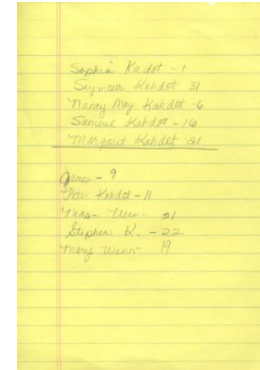 Sophia Kadot - 1
Seymour Kahdot 31
Nancy May Kahdot - 6
Samuel Kahdot - 16
Margaret Kahdot - 21
James - 9
Peter Kahdot - 11
31
Stephen K. - 22
Mary 19